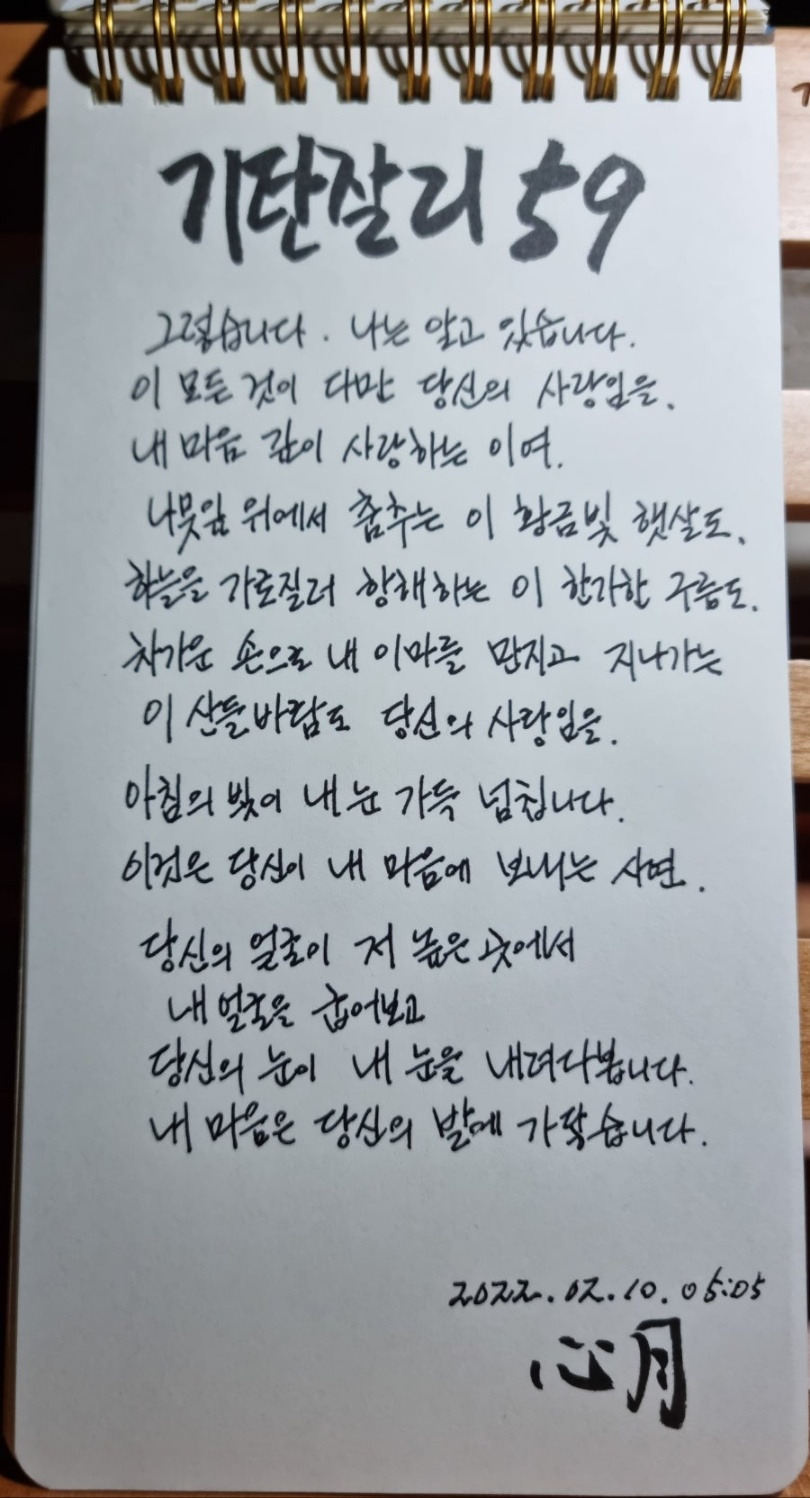 기탄잘리 59
그렇습니다. 나는 알고 있습니다.
이 모든 것이 다만 당신의 사랑임을.
내 마음 깊이 사랑하는 이여.
나뭇잎 위에서 춤추는 이 황금빛 햇살도.
하늘을 가로질러 항해하는 이 한가한 구름도.
차가운 손으로 내 이마를 만지고 지나가는
이 산들바람도 당신의 사랑임을.
아침의 빛이 내 눈 가득 넘칩니다.
이것은 당신이 내 마음에 보내는 사연.
당신의 얼굴이 저 높은 곳에서
내 얼굴을 굽어보고
당신의 눈이 내 눈을 내려다봅니다.
내 마음은 당신의 발에 가닿습니다.
2022.02.10. 05:05
心月